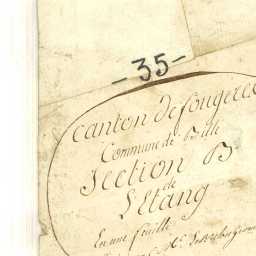 -35-
Canton de Fougeres
Commune de
Section B
de
L'Etang
En une feuille
Mr.